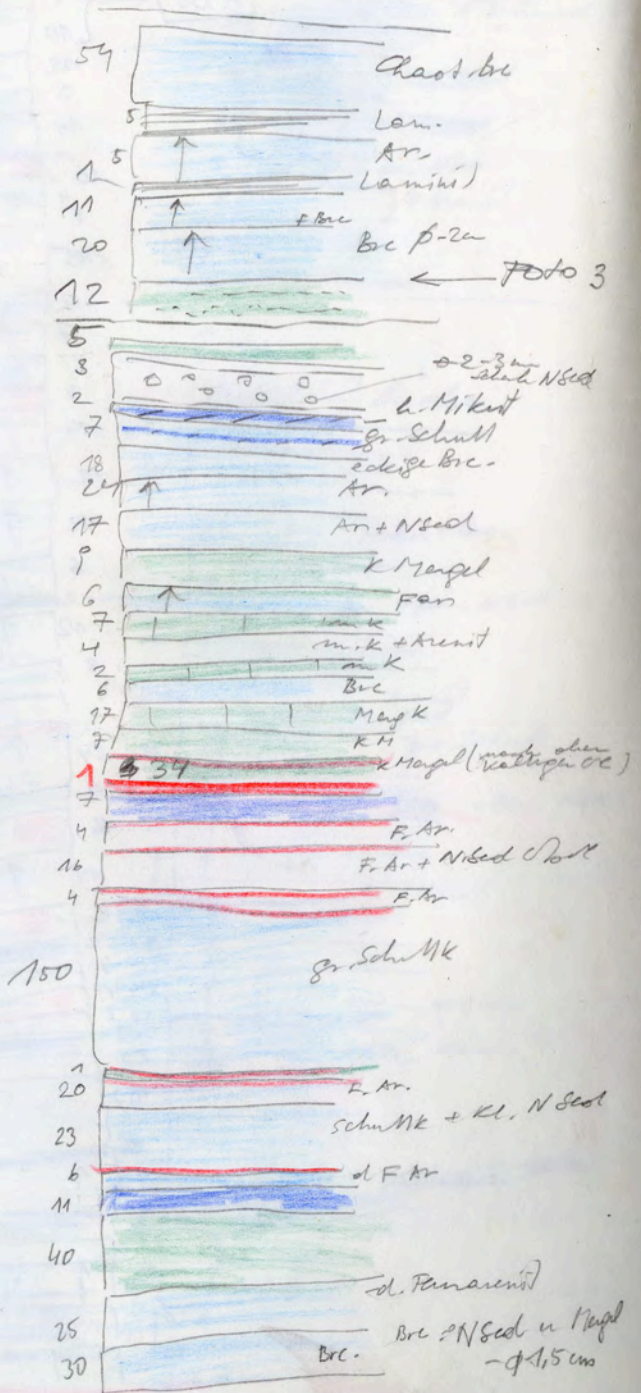 54 Chaot. brc
5 Lam.
5 Ar.
1 Lamini
11 f Brc
20 Brc ϕ-2cm
← Foto 3
12
5
3 ⌀-2-3 cm NSed
2 h. Mikrit
7 gr. Schutt
18 eckige Brc.
24 Ar.
17 Ar + NSed
9 K Mergel
6 Fan
7 m K
4 m. K + Arenit
2 m K
6 Brc
17 Merg K
7 K M
1 34 K Mergel (nach oben kalkiger)
7
4 F. Ar.
16 F. Ar + NSed
4 F. Ar
150 gr. Schutt K
1
20 F. Ar.
23 Schutt K + Kl. N Sed
6 d F Ar
11
40
d. Feinarenit
25 Brc NSed u Mergel
30 Brc. -ϕ 1,5 cm